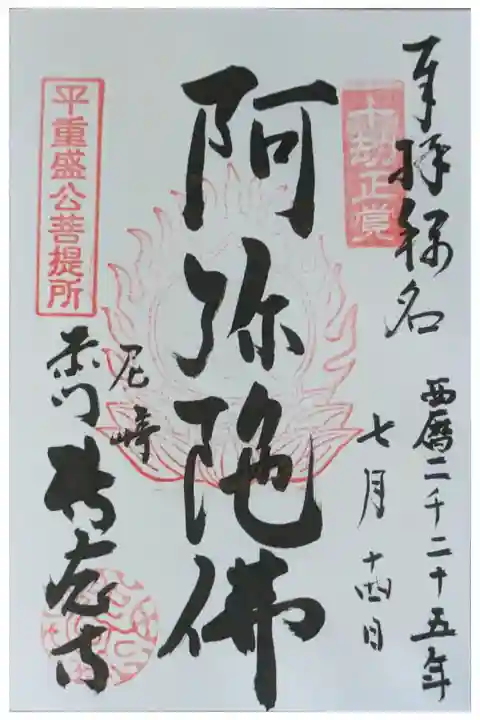 奉拝称名
十劫正覚
西暦二千二十五年
七月十四日
阿弥陀佛
平重盛公菩提所
尼崎
赤門 専念寺